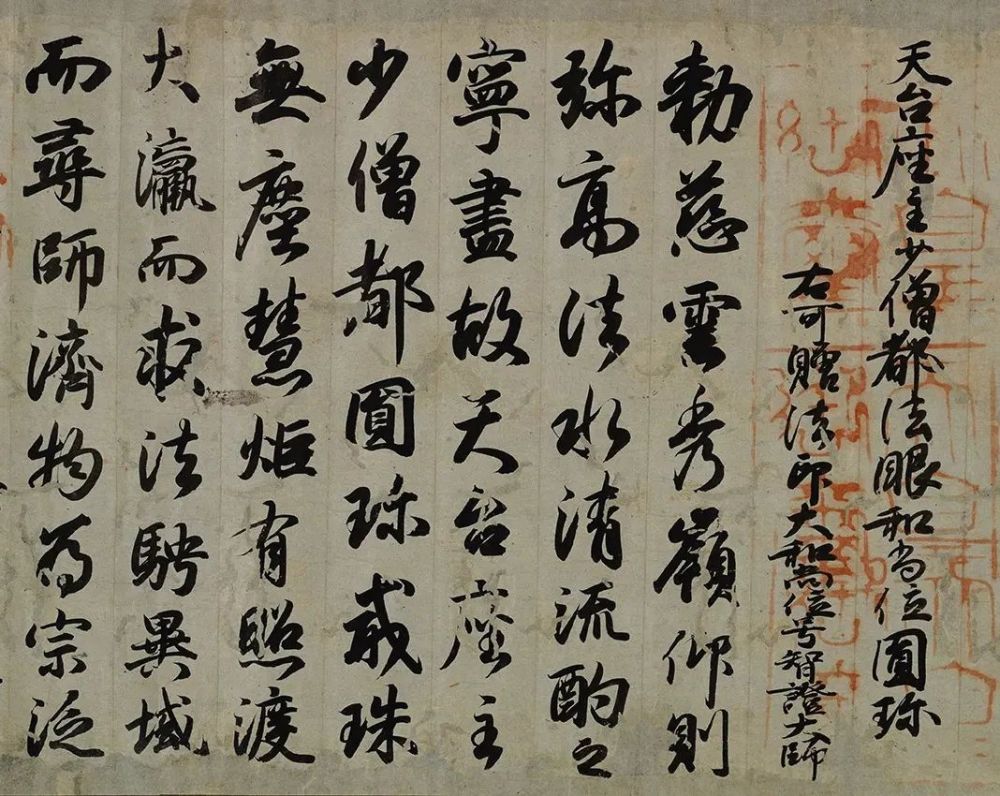 天台座主少僧都法眼和尚位圓珎
右可贈法印大和尚位号智證大師
勅慈雲秀嶺仰則
弥高法水清流酌之
寧盡故天台座主
少僧都圓珎戒珠
無塵慧炬有照渡
大瀛而求法騁異域
而尋師濟物為宗泛